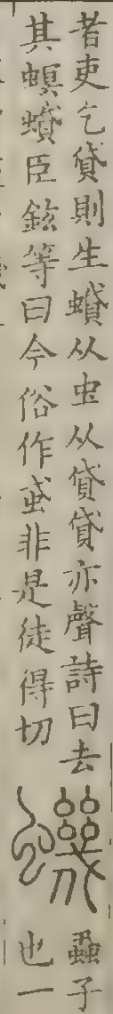 者吏乞貸則生蟘从虫从貸貸亦聲詩曰去
其螟蟘臣鉉等曰今俗作䖧非是徒得切
蟣
蝨子
也一